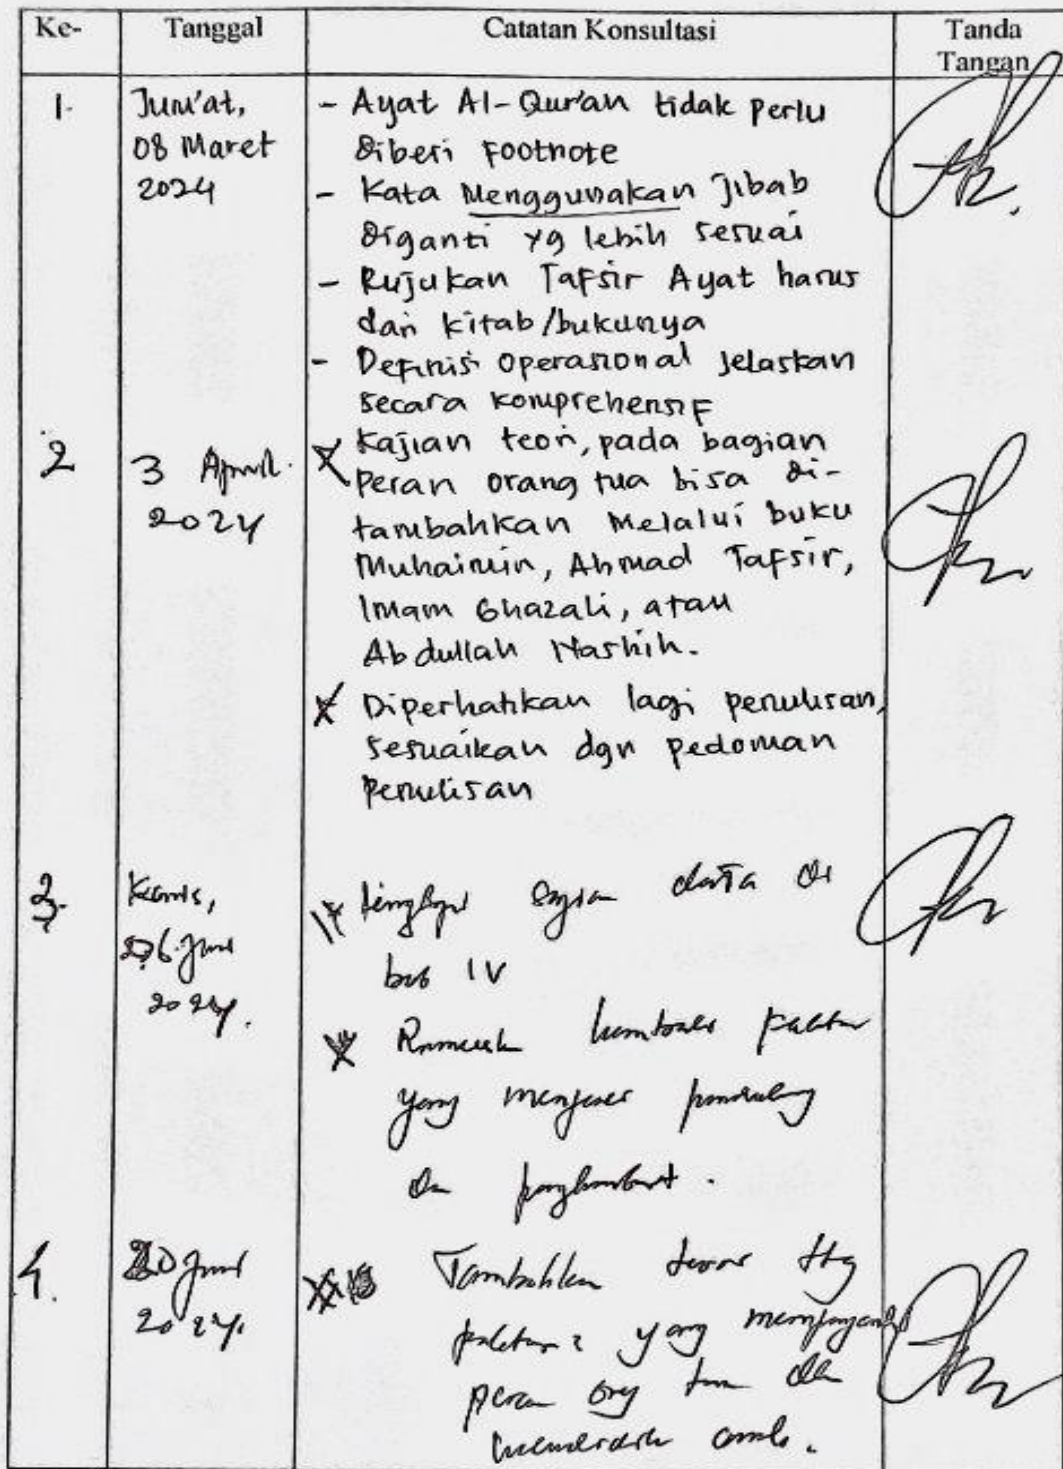 Ke-
Tanggal
Catatan Konsultasi
Tanda
Tangan
1.
Jum'at,
08 Maret
2024
- Ayat Al-Qur'an tidak perlu
diberi Footnote
- Kata Menggunakan Jibab
diganti yg lebih sesuai
- Rujukan Tafsir Ayat harus
dari kitab/bukunya
- Definisi Operasional jelaskan
secara komprehensif
2
3 April
2024
Kajian teori, pada bagian
peran orang tua bisa di-
tambahkan melalui buku
Muhaimin, Ahmad Tafsir,
Imam Ghazali, atau
Abdullah Nashih.
Diperhatikan lagi penulisan,
sesuaikan dgn pedoman
penulisan
3.
Kamis,
6 Juni
2024.
data di
bab IV
yang menjadi
penghambat.
4.
20 Juni
2024.
Tambahkan teori ttg
yang
peran org tua dlm
mendidik anak.